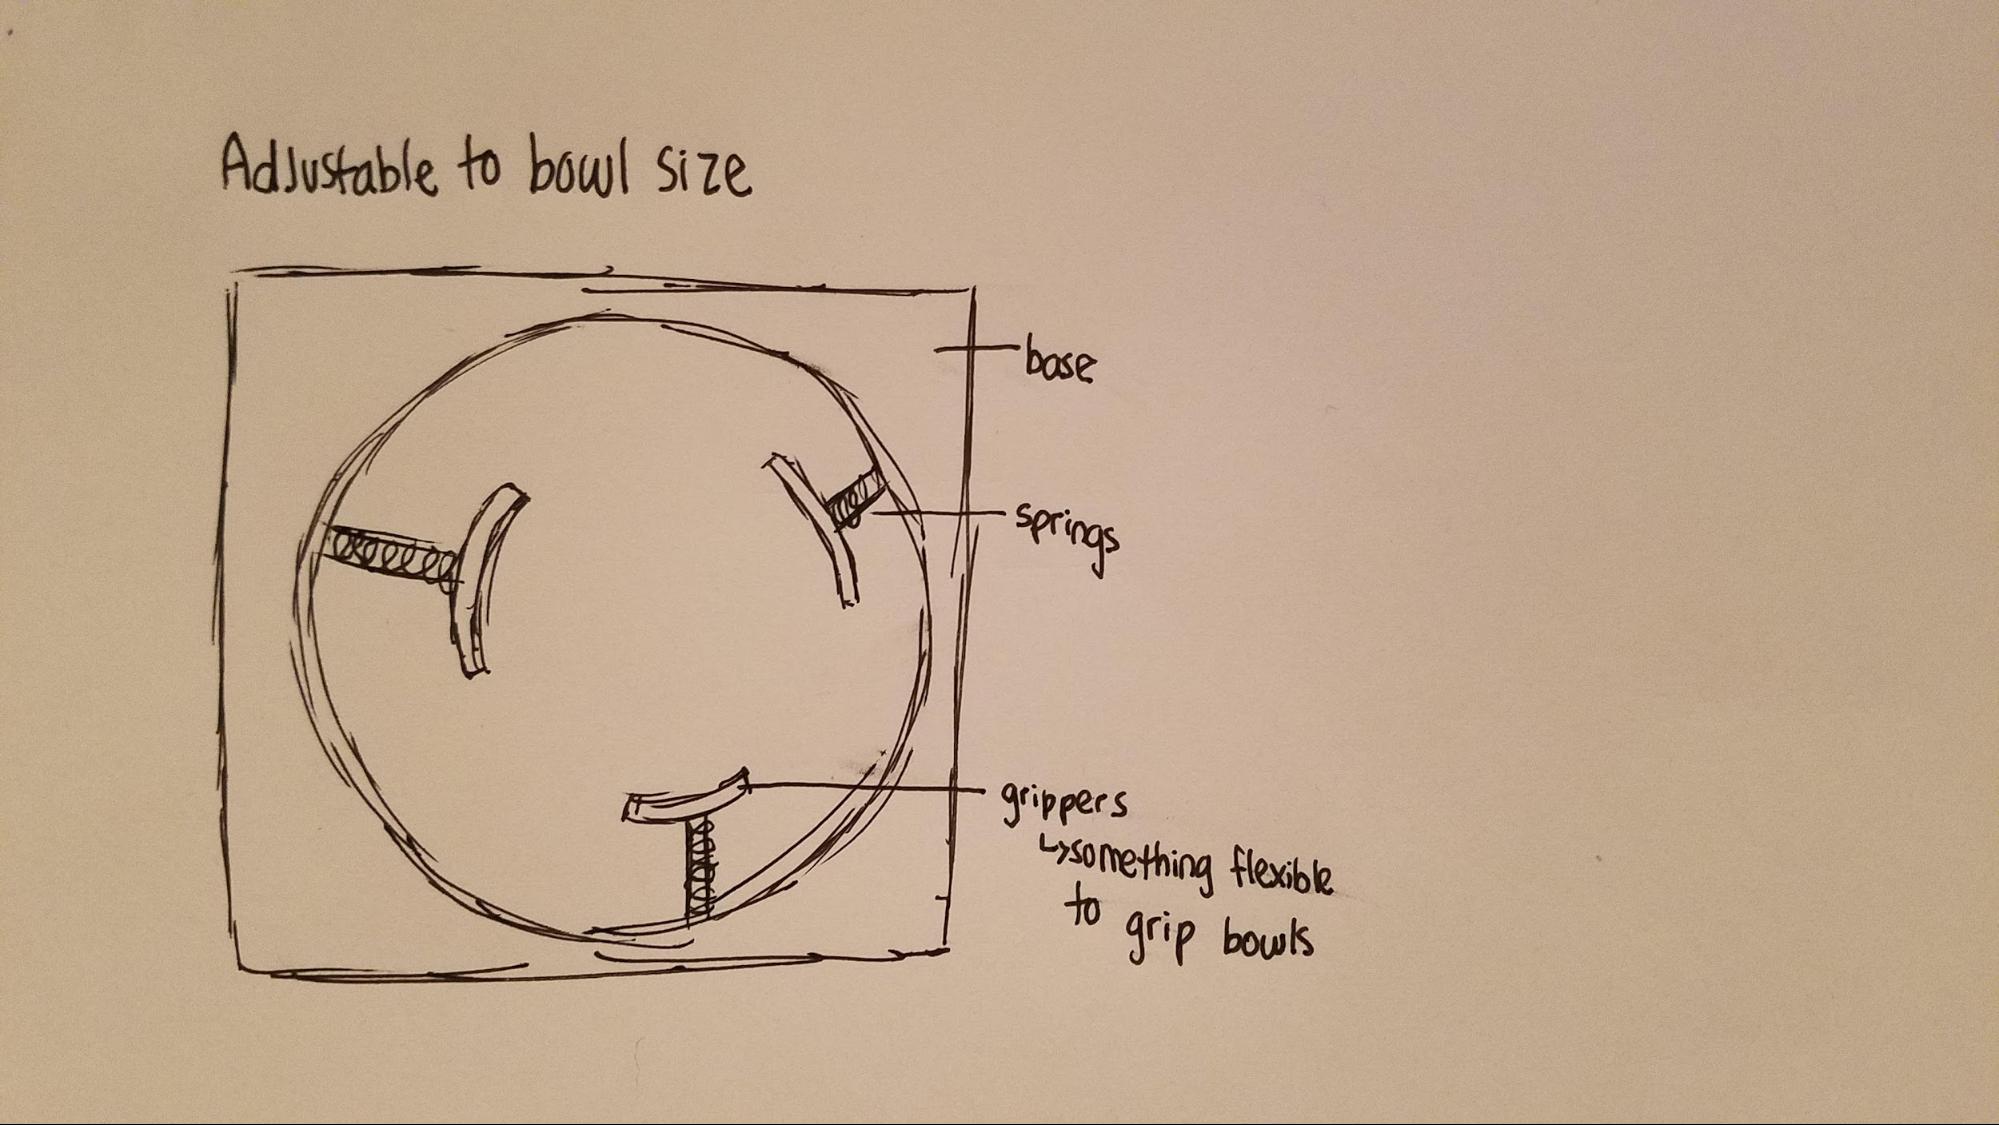 Adjustable to bowl size
base
springs
grippers
↳something flexible
to grip bowls